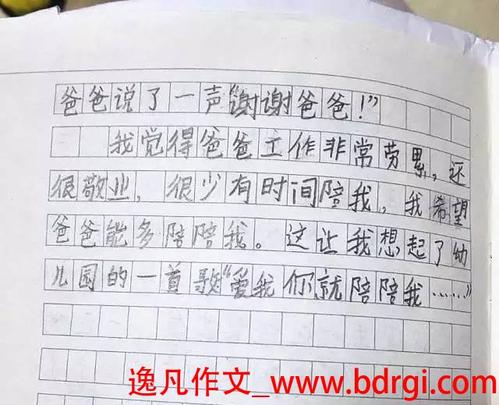 爸爸说了一声“谢谢爸爸！”
我觉得爸爸工作非常劳累，还
很敬业，很少有时间陪我，我希望
爸爸能多陪陪我。这让我想起了幼
儿园的一首歌“爱我你就陪陪我……”
逸凡作文_www.bdrgi.com